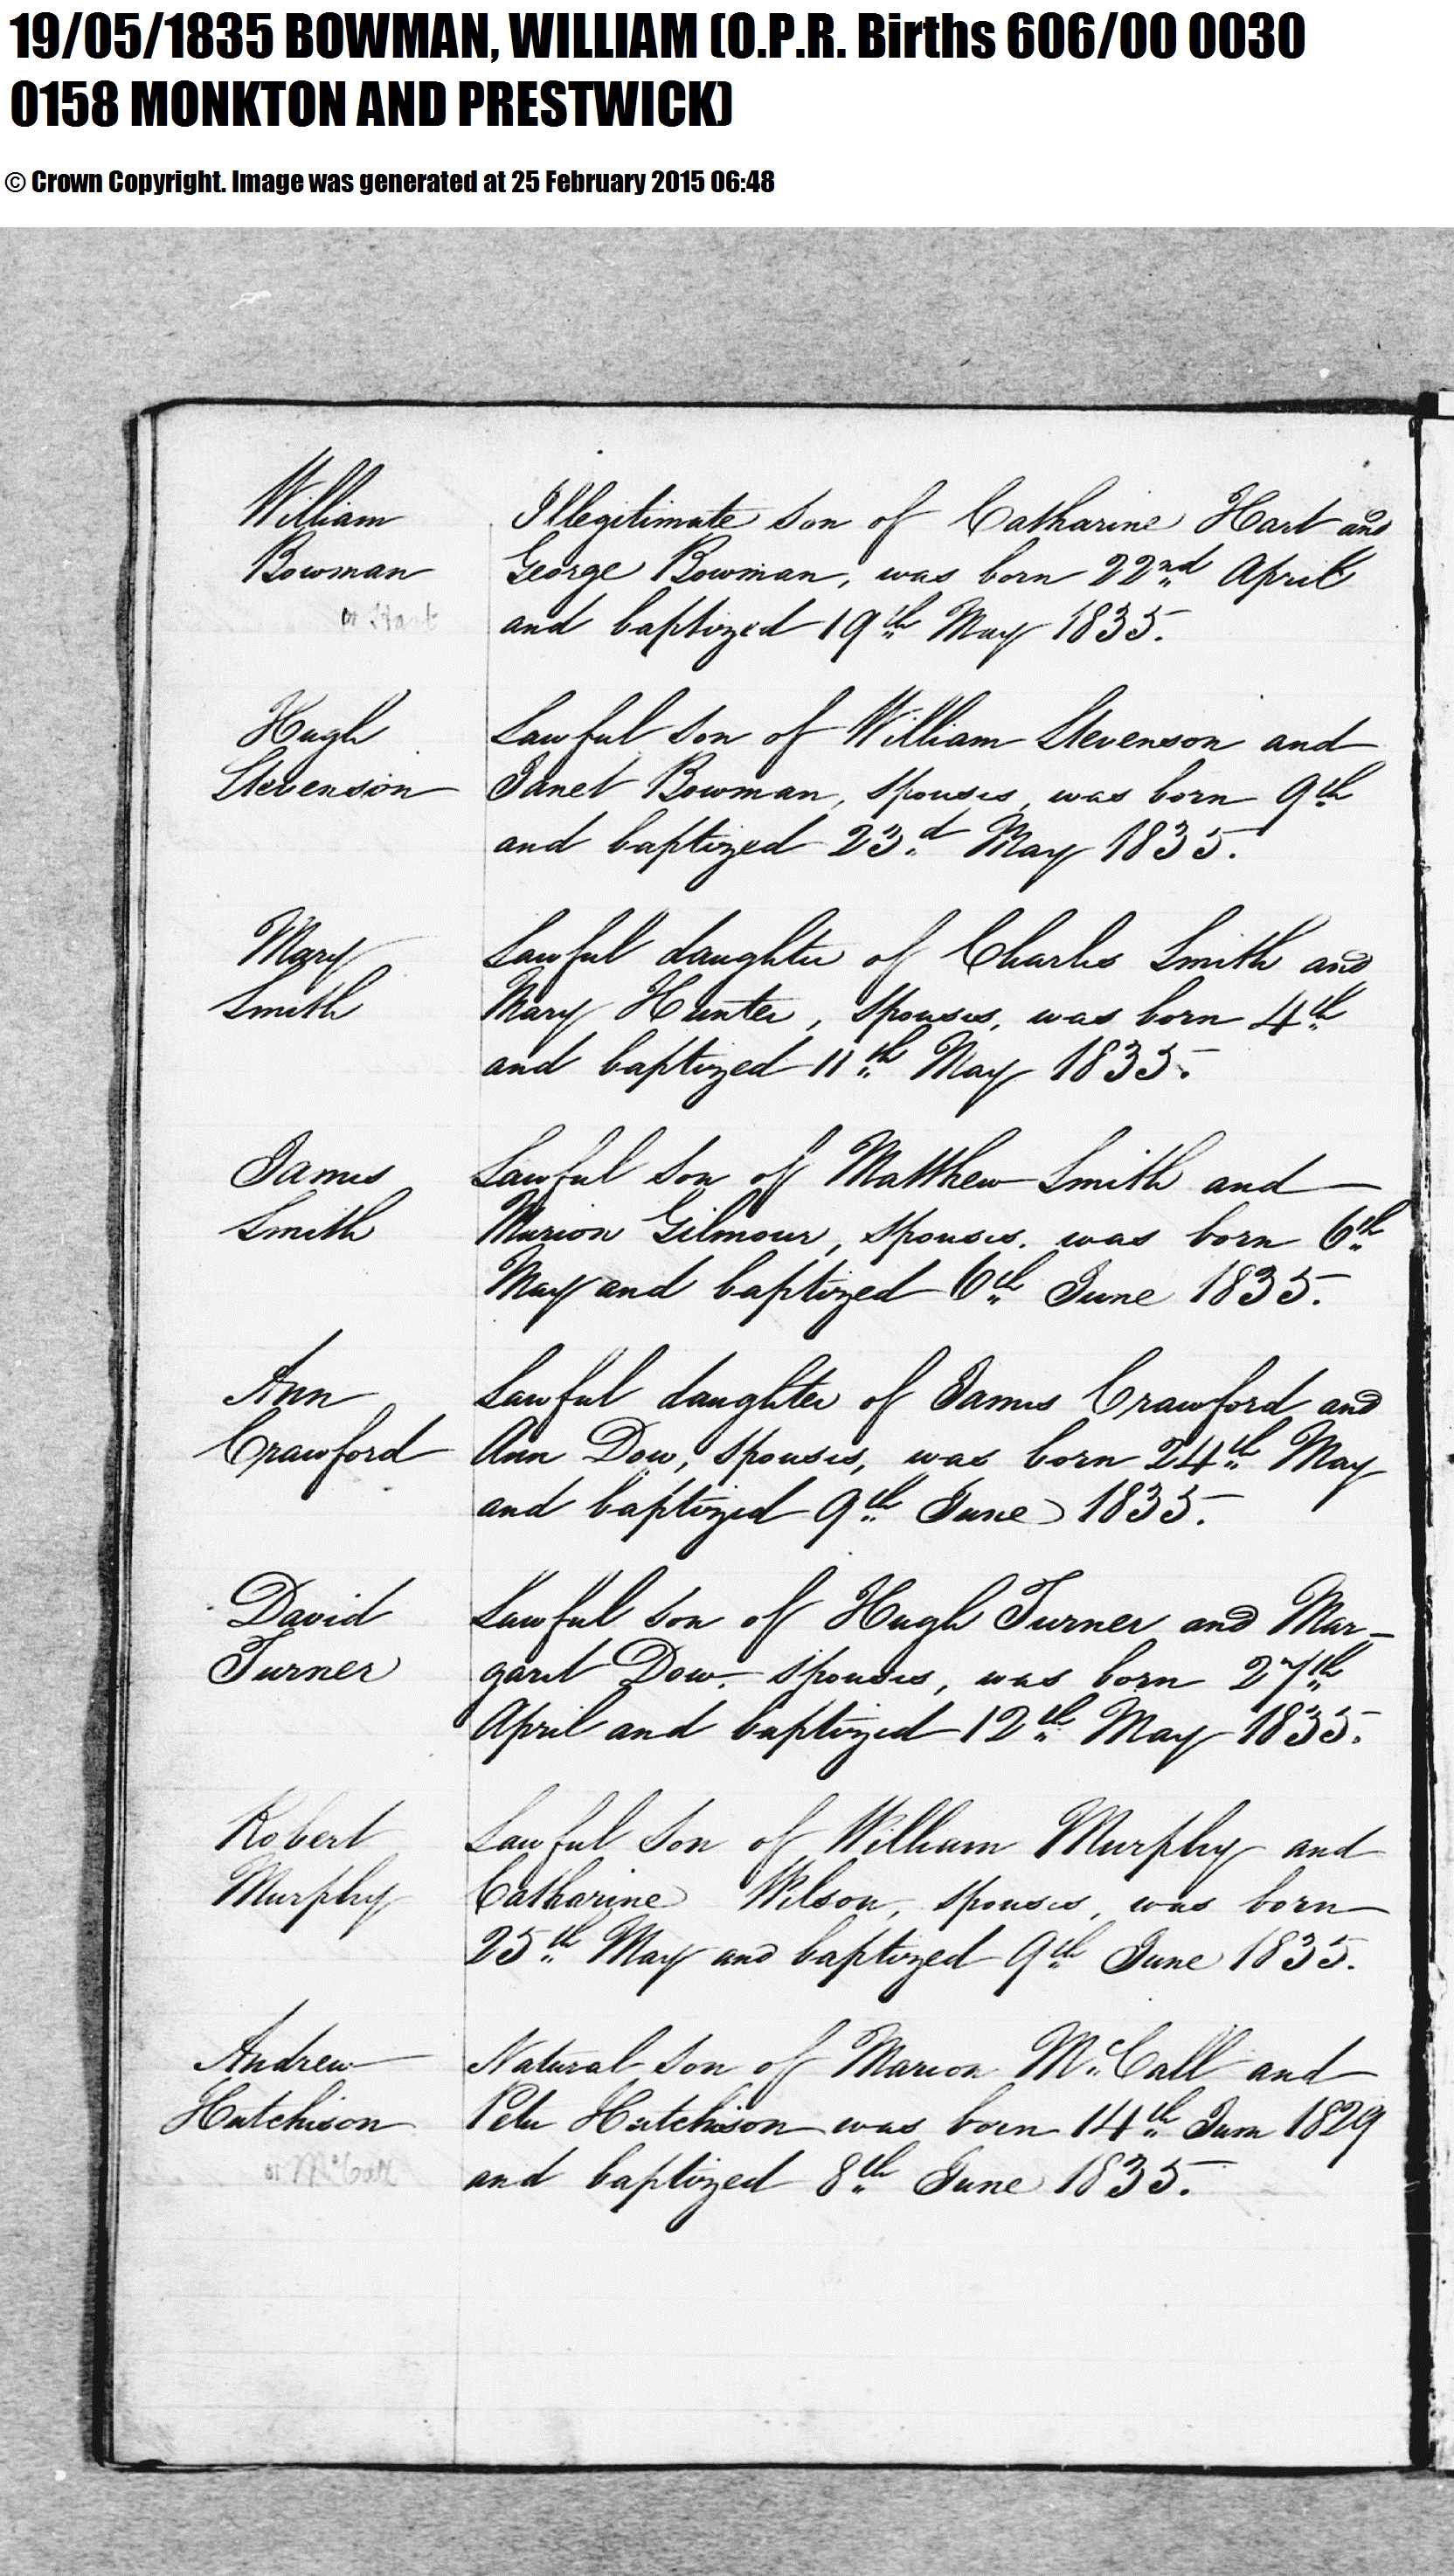 19/05/1835 BOWMAN, WILLIAM (O.P.R. Births 606/00 0030
0158 MONKTON AND PRESTWICK)
© Crown Copyright. Image was generated at 25 February 2015 06:48
William
Bowman
or Hart
Illegitimate son of Catharine Hart and
George Bowman, was born 22nd April
and baptized 19th May 1835.
Hugh
Stevenson
Lawful son of William Stevenson and
Janet Bowman, spouses, was born 9th
and baptized 23d May 1835.
Mary
Smith
Lawful daughter of Charles Smith and
Mary Hunter, spouses, was born 4th
and baptized 11th May 1835.
James
Smith
Lawful son of Matthew Smith and
Marion Gilmour, spouses. was born 6th
May and baptized 6th June 1835.
Ann
Crawford
Lawful daughter of James Crawford and
Ann Dow, spouses, was born 24th May
and baptized 9th June 1835.
David
Turner
Lawful son of Hugh Turner and Mar-
garet Dow. spouses, was born 27th
April and baptized 12th May 1835.
Robert
Murphy
Lawful son of William Murphy and
Catharine Wilson, spouses, was born
25th May and baptized 9th June 1835.
Andrew
Hutchison
or McCall
Natural son of Marion McCall and
Peter Hutchison was born 14th June 1829
and baptized 8th June 1835.